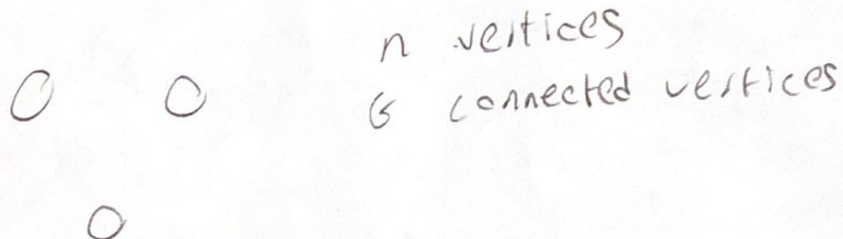 n vertices
G connected vertices